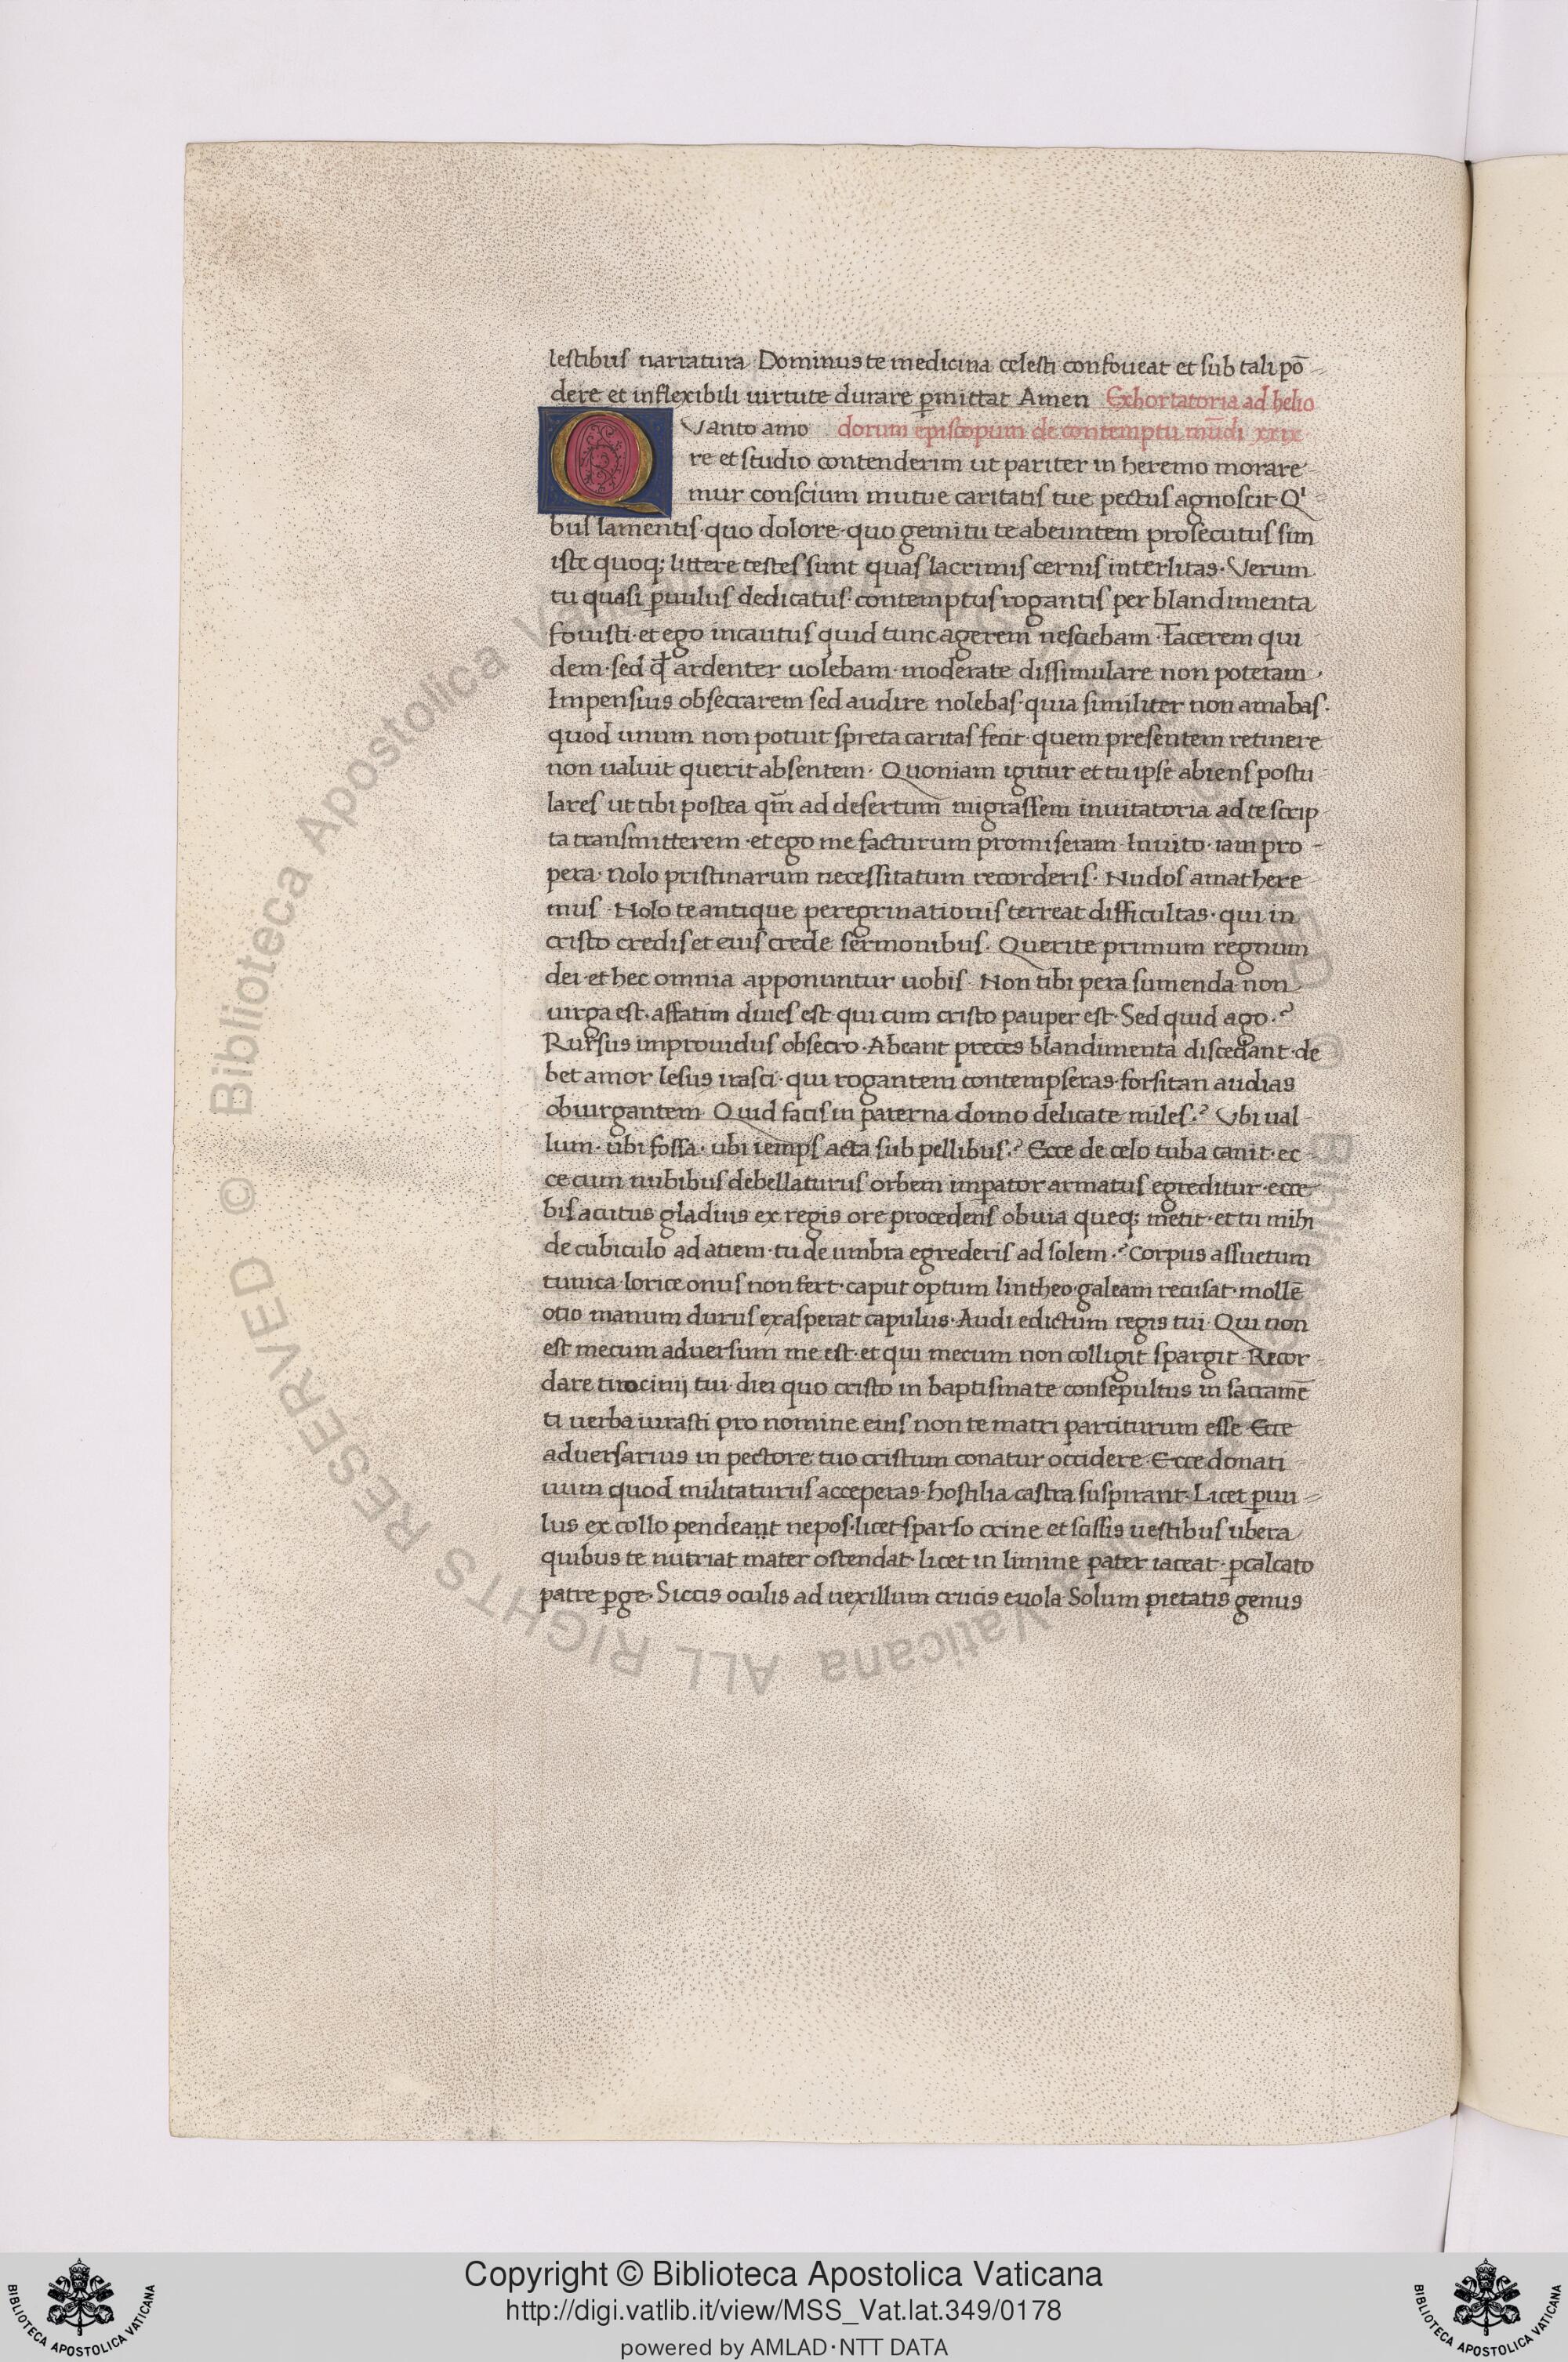 lestibus narratura Dominus te medicina celesti confoueat et sub tali pō
dere et inflexibili uirtute durare ꝑmittat Amen Exhortatoria ad helio
Vanto amo dorum episcopum de contemptu mūdi xxix
re et studio contenderim ut pariter in heremo morare
mur conscium mutue caritatis tue pectus agnoscit· Qⁱ
bus lamentis· quo dolore· quo gemitu te abeuntem prosecutus sim
iste quoq; littere testes sunt quas lacrimis cernis interlitas· Verum
tu quasi ꝑuulus dedicatus· contemptus rogantis per blandimenta
fouisti· et ego incautus quid tunc agerem nesciebam· Tacerem qui
dem· sed ꝙ ardenter uolebam· moderate dissimulare non poteram·
Impensius obsecrarem sed audire nolebas· quia similiter non amabas·
quod unum non potuit spreta caritas fecit· quem presentem retinere
non ualuit querit absentem· Quoniam igitur et tu ipse abiens postu
lares ut tibi postea qm̄ ad desertum migrassem inuitatoria ad te scrip
ta transmitterem· et ego me facturum promiseram· Inuito· iam pro
pera· Nolo pristinarum necessitatum recorderis· Nudos amat here
mus· Nolo te antique peregrinationis terreat difficultas· qui in
cristo credis et eius crede sermonibus· Querite primum regnum
dei· et hec omnia apponuntur uobis· Non tibi pera sumenda non
uirga est· affatim diues est qui cum cristo pauper est· Sed quid ago·?
Rursus improuidus obsecro· Abeant preces blandimenta discedant· de
bet amor lesus irasci· qui rogantem contempseras· forsitan audias
obiurgantem Quid facis in paterna domo delicate miles·? Vbi ual
lum· ubi fossa· ubi iemps acta sub pellibus·? Ecce de celo tuba canit· ec
ce cum nubibus debellaturus orbem imꝑator armatus egreditur· ecce
bis acutus gladius ex regis ore procedens obuia queq; metit· et tu mihi
de cubiculo ad atiem· tu de umbra egrederis ad solem·? Corpus assuetum
tunica· lorice onus non fert· caput optum lintheo· galeam recusat· mollē
otio manum durus exasperat capulus· Audi edictum regis tui· Qui non
est mecum aduersum me est· et qui mecum non colligit spargit· Recor
dare tirocinij tui diei quo cristo in baptismate consepultus in sacramē
ti uerba iurasti pro nomine eius non te matri parciturum esse· Ecce
aduersarius in pectore tuo cristum conatur occidere· Ecce donati
uum quod militaturus acceperas· hostilia castra suspirant· Licet ꝑuu
lus ex collo pendeant nepos· licet sparso crine et scissis uestibus ubera
quibus te nutriat mater ostendat· licet in limine pater iaceat· ꝑcalcato
patre ꝑge· Siccis oculis ad uexillum crucis euola· Solum pietatis genus
© Biblioteca Apostolica Vaticana ALL RIGHTS RESERVED
BIBLIOTECA APOSTOLICA VATICANA
Copyright © Biblioteca Apostolica Vaticana
http://digi.vatlib.it/view/MSS_Vat.lat.349/0178
powered by AMLAD·NTT DATA
BIBLIOTECA APOSTOLICA VATICANA